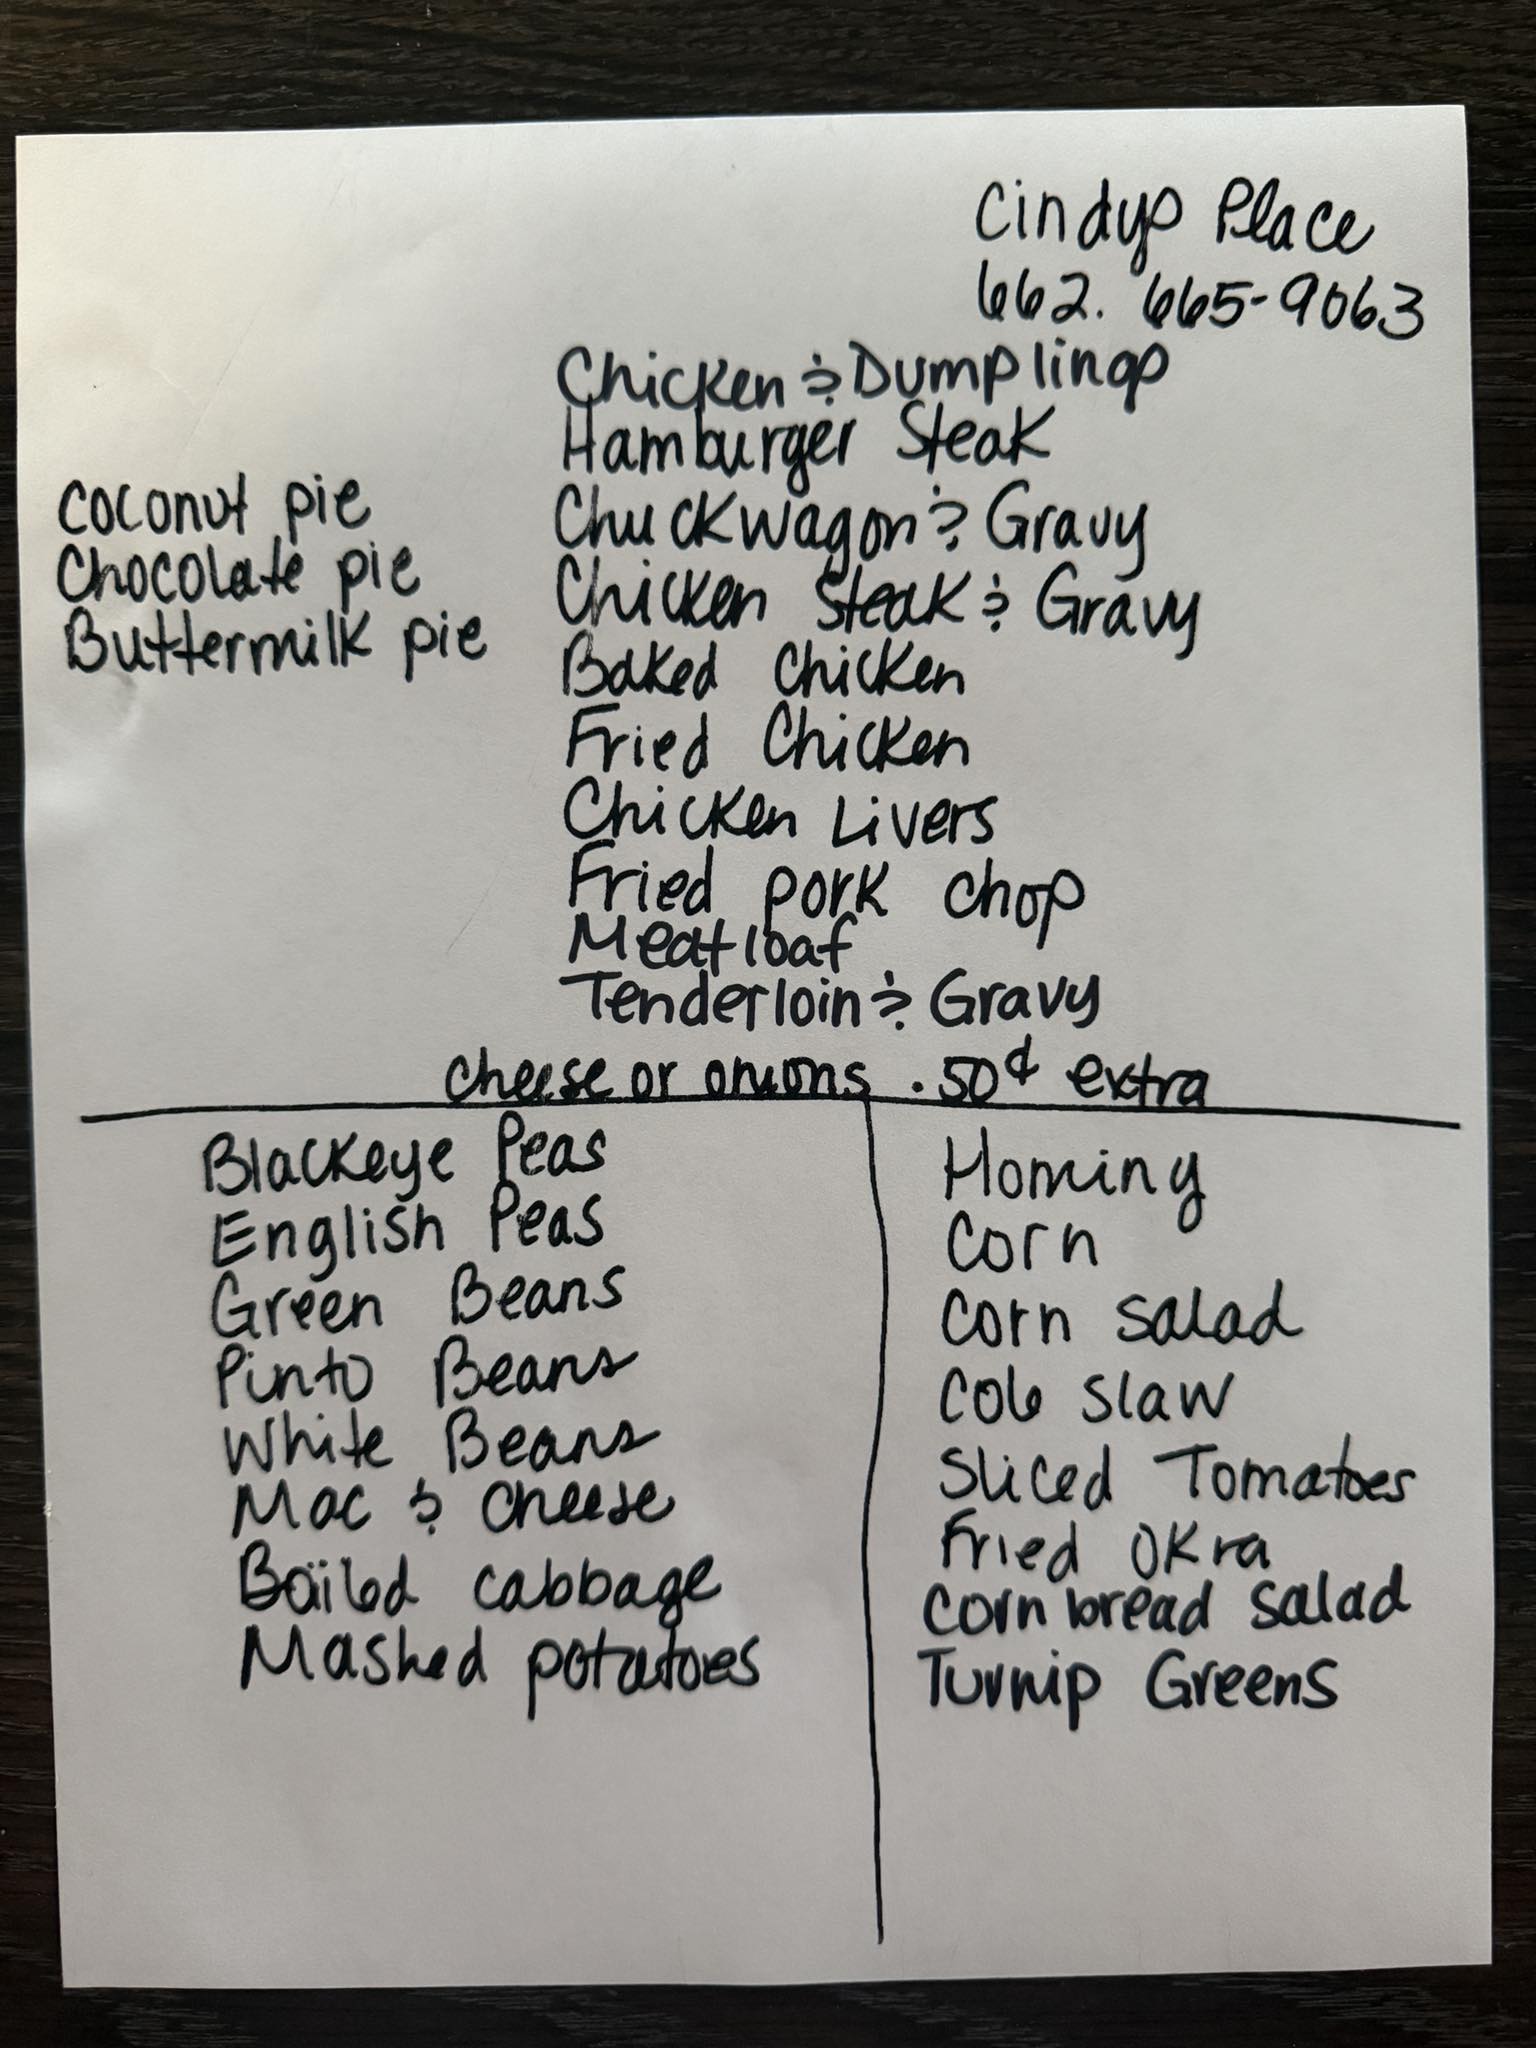 Cindys Place
662. 665-9063
Chicken & Dumplings
Hamburger Steak
Chuckwagon & Gravy
Chicken Steak & Gravy
Baked Chicken
Fried Chicken
Chicken Livers
Fried pork chop
Meatloaf
Tenderloin & Gravy
Coconut pie
Chocolate pie
Buttermilk pie
Cheese or onions .50¢ extra
Blackeye Peas
English Peas
Green Beans
Pinto Beans
White Beans
Mac & Cheese
Boiled cabbage
Mashed potatoes
Hominy
Corn
Corn Salad
Cole Slaw
Sliced Tomatoes
Fried Okra
Cornbread Salad
Turnip Greens